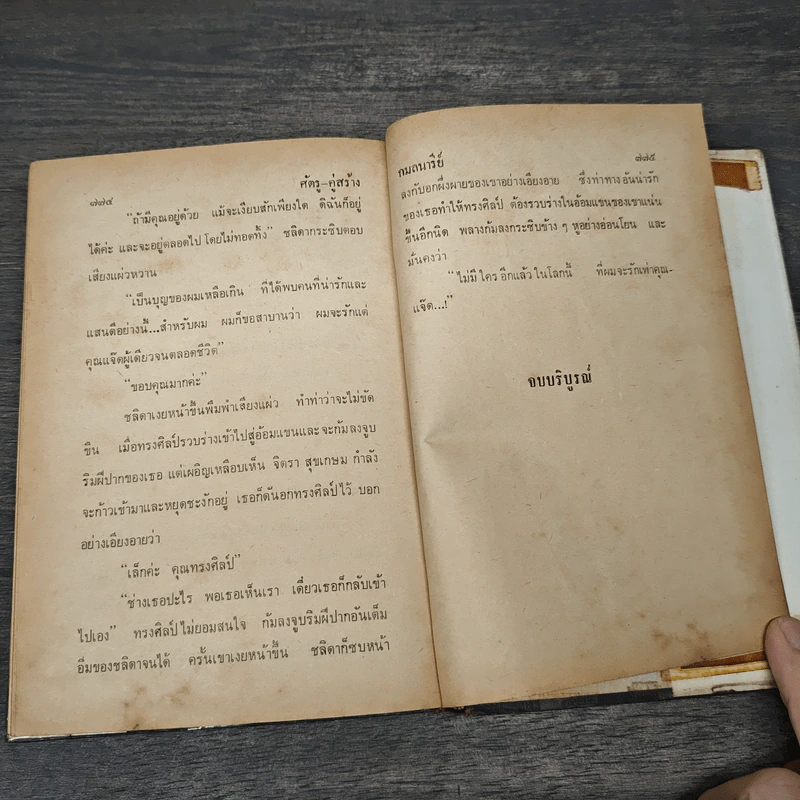 ๗๗๔ ศัตรู-คู่สร้าง
“ถ้ามีคุณอยู่ด้วย แม้จะเงียบสักเพียงใด ดิฉันก็อยู่
ได้ค่ะ และจะอยู่ตลอดไป โดยไม่ทอดทิ้ง” ชลิดากระซิบตอบ
เสียงแผ่วหวาน
“เป็นบุญของผมเหลือเกิน ที่ได้พบคนที่น่ารักและ
แสนดีอย่างนี้...สำหรับผม ผมก็ขอสาบานว่า ผมจะรักแต่
คุณแจ๊ดผู้เดียวจนตลอดชีวิต”
“ขอบคุณมากค่ะ”
ชลิดาเงยหน้าขึ้นพึมพำเสียงแผ่ว ทำท่าว่าจะไม่ขัด
ขืน เมื่อทรงศิลป์รวบร่างเข้าไปสู่อ้อมแขนและจะก้มลงจูบ
ริมฝีปากของเธอ แต่เผอิญเหลือบเห็น จิตรา สุขเกษม กำลัง
จะก้าวเข้ามาและหยุดชะงักอยู่ เธอก็ดันอกทรงศิลป์ไว้ บอก
อย่างเอียงอายว่า
“เล็กค่ะ คุณทรงศิลป์”
“ช่างเธอปะไร พอเธอเห็นเรา เดี๋ยวเธอก็กลับเข้า
ไปเอง” ทรงศิลป์ไม่ยอมสนใจ ก้มลงจูบริมฝีปากอันเต็ม
อิ่มของชลิดาจนได้ ครั้นเขาเงยหน้าขึ้น ชลิดาก็ซบหน้า
กมลนารีย์ ๗๗๕
ลงกับอกผึ่งผายของเขาอย่างเอียงอาย ซึ่งท่าทางอันน่ารัก
ของเธอทำให้ทรงศิลป์ ต้องรวบร่างในอ้อมแขนของเขาแน่น
ขึ้นอีกนิด พลางก้มลงกระซิบข้าง ๆ หูอย่างอ่อนโยน และ
มั่นคงว่า
“ไม่มีใครอีกแล้วในโลกนี้ ที่ผมจะรักเท่าคุณ-
แจ๊ด...!”
จบบริบูรณ์